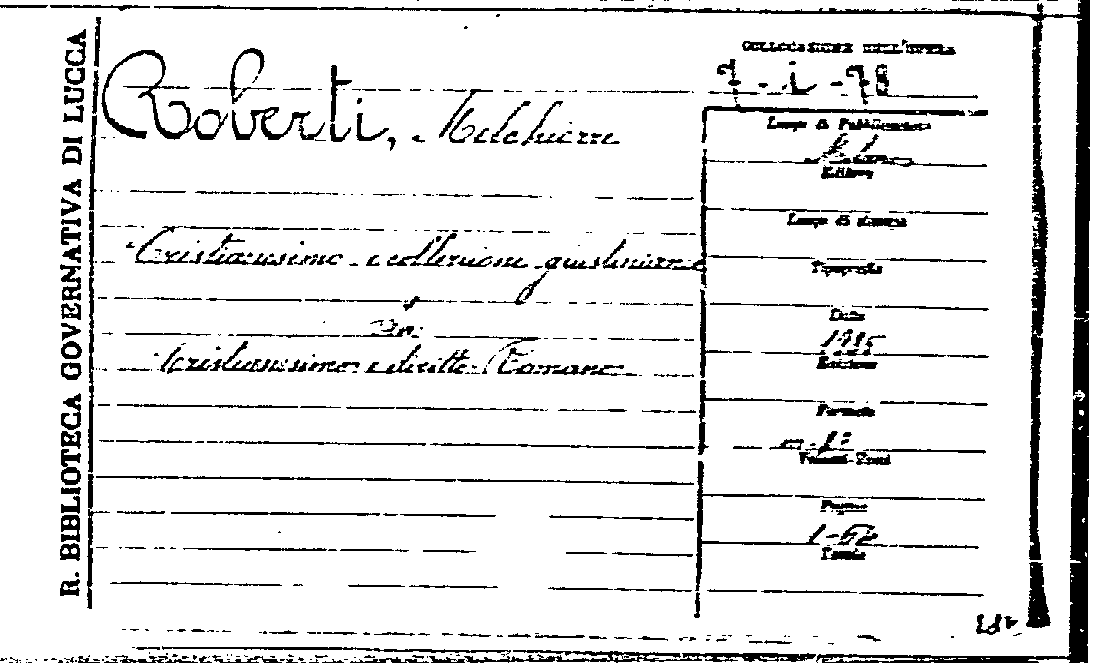 R. BIBLIOTECA GOVERNATIVA DI LUCCA
Roberti, Melchiorre
Cristianesimo e collezione giustinianea
In:
Cristianesimo e diritto Romano
COLLOCAZIONE DELL'OPERA
7-i-78
Luogo di Pubblicazione
Milano
Editore
Luogo di stampa
Tipografia
Data
1935
Edizione
Formato
in-8°
Volumi-Tomi
Pagine
1-62
Tavole